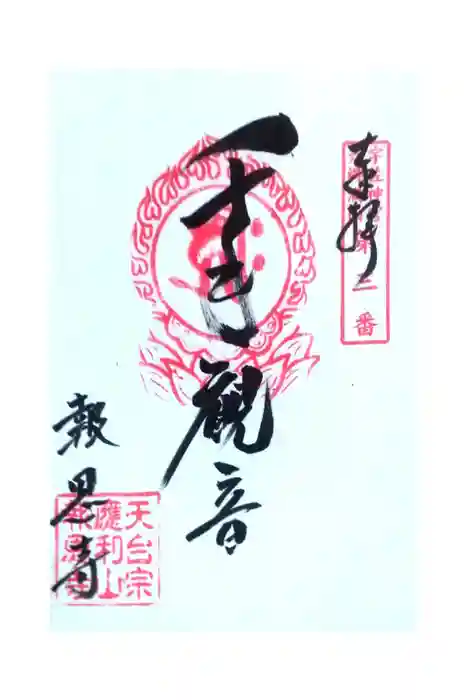 奉拝
番
千手観音
報恩寺
天台宗
應利山
報恩寺